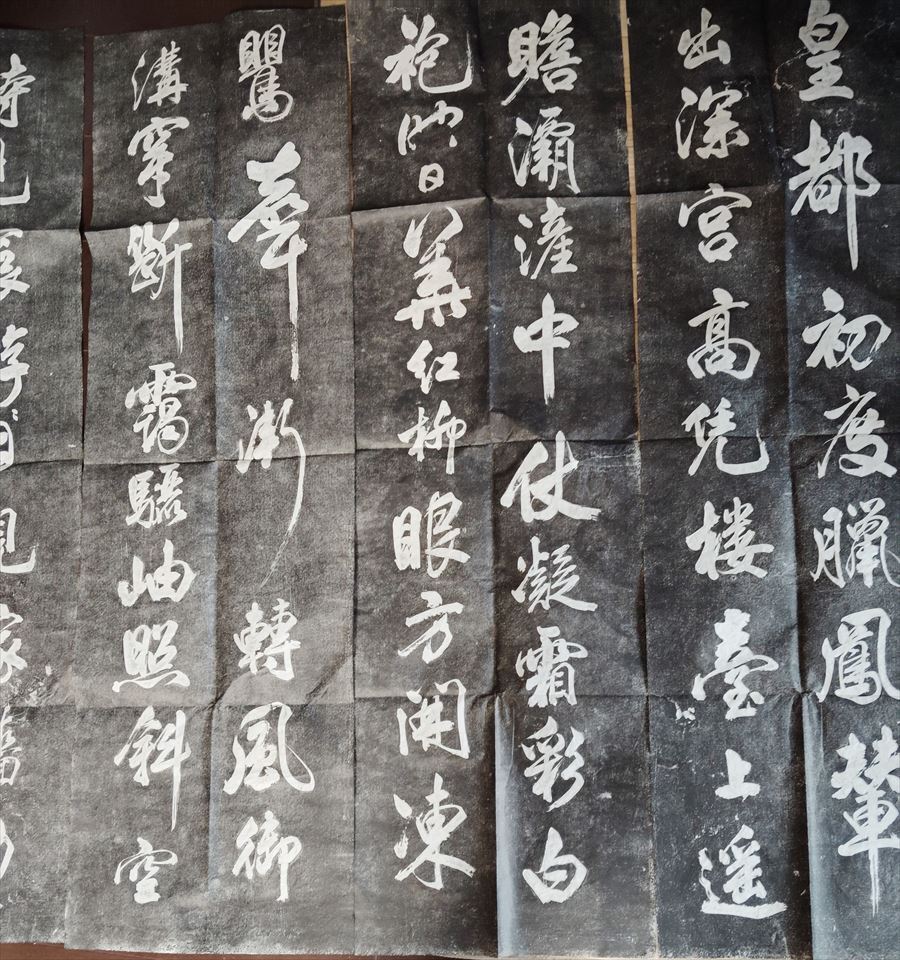 皇都初度臘鳳輦
出深宮高凭楼臺上遥
瞻灞滻中仗凝霜彩白
袍映日華紅柳眼方開凍
鸎聲漸轉風御
溝穿斷靄驪岫照斜空